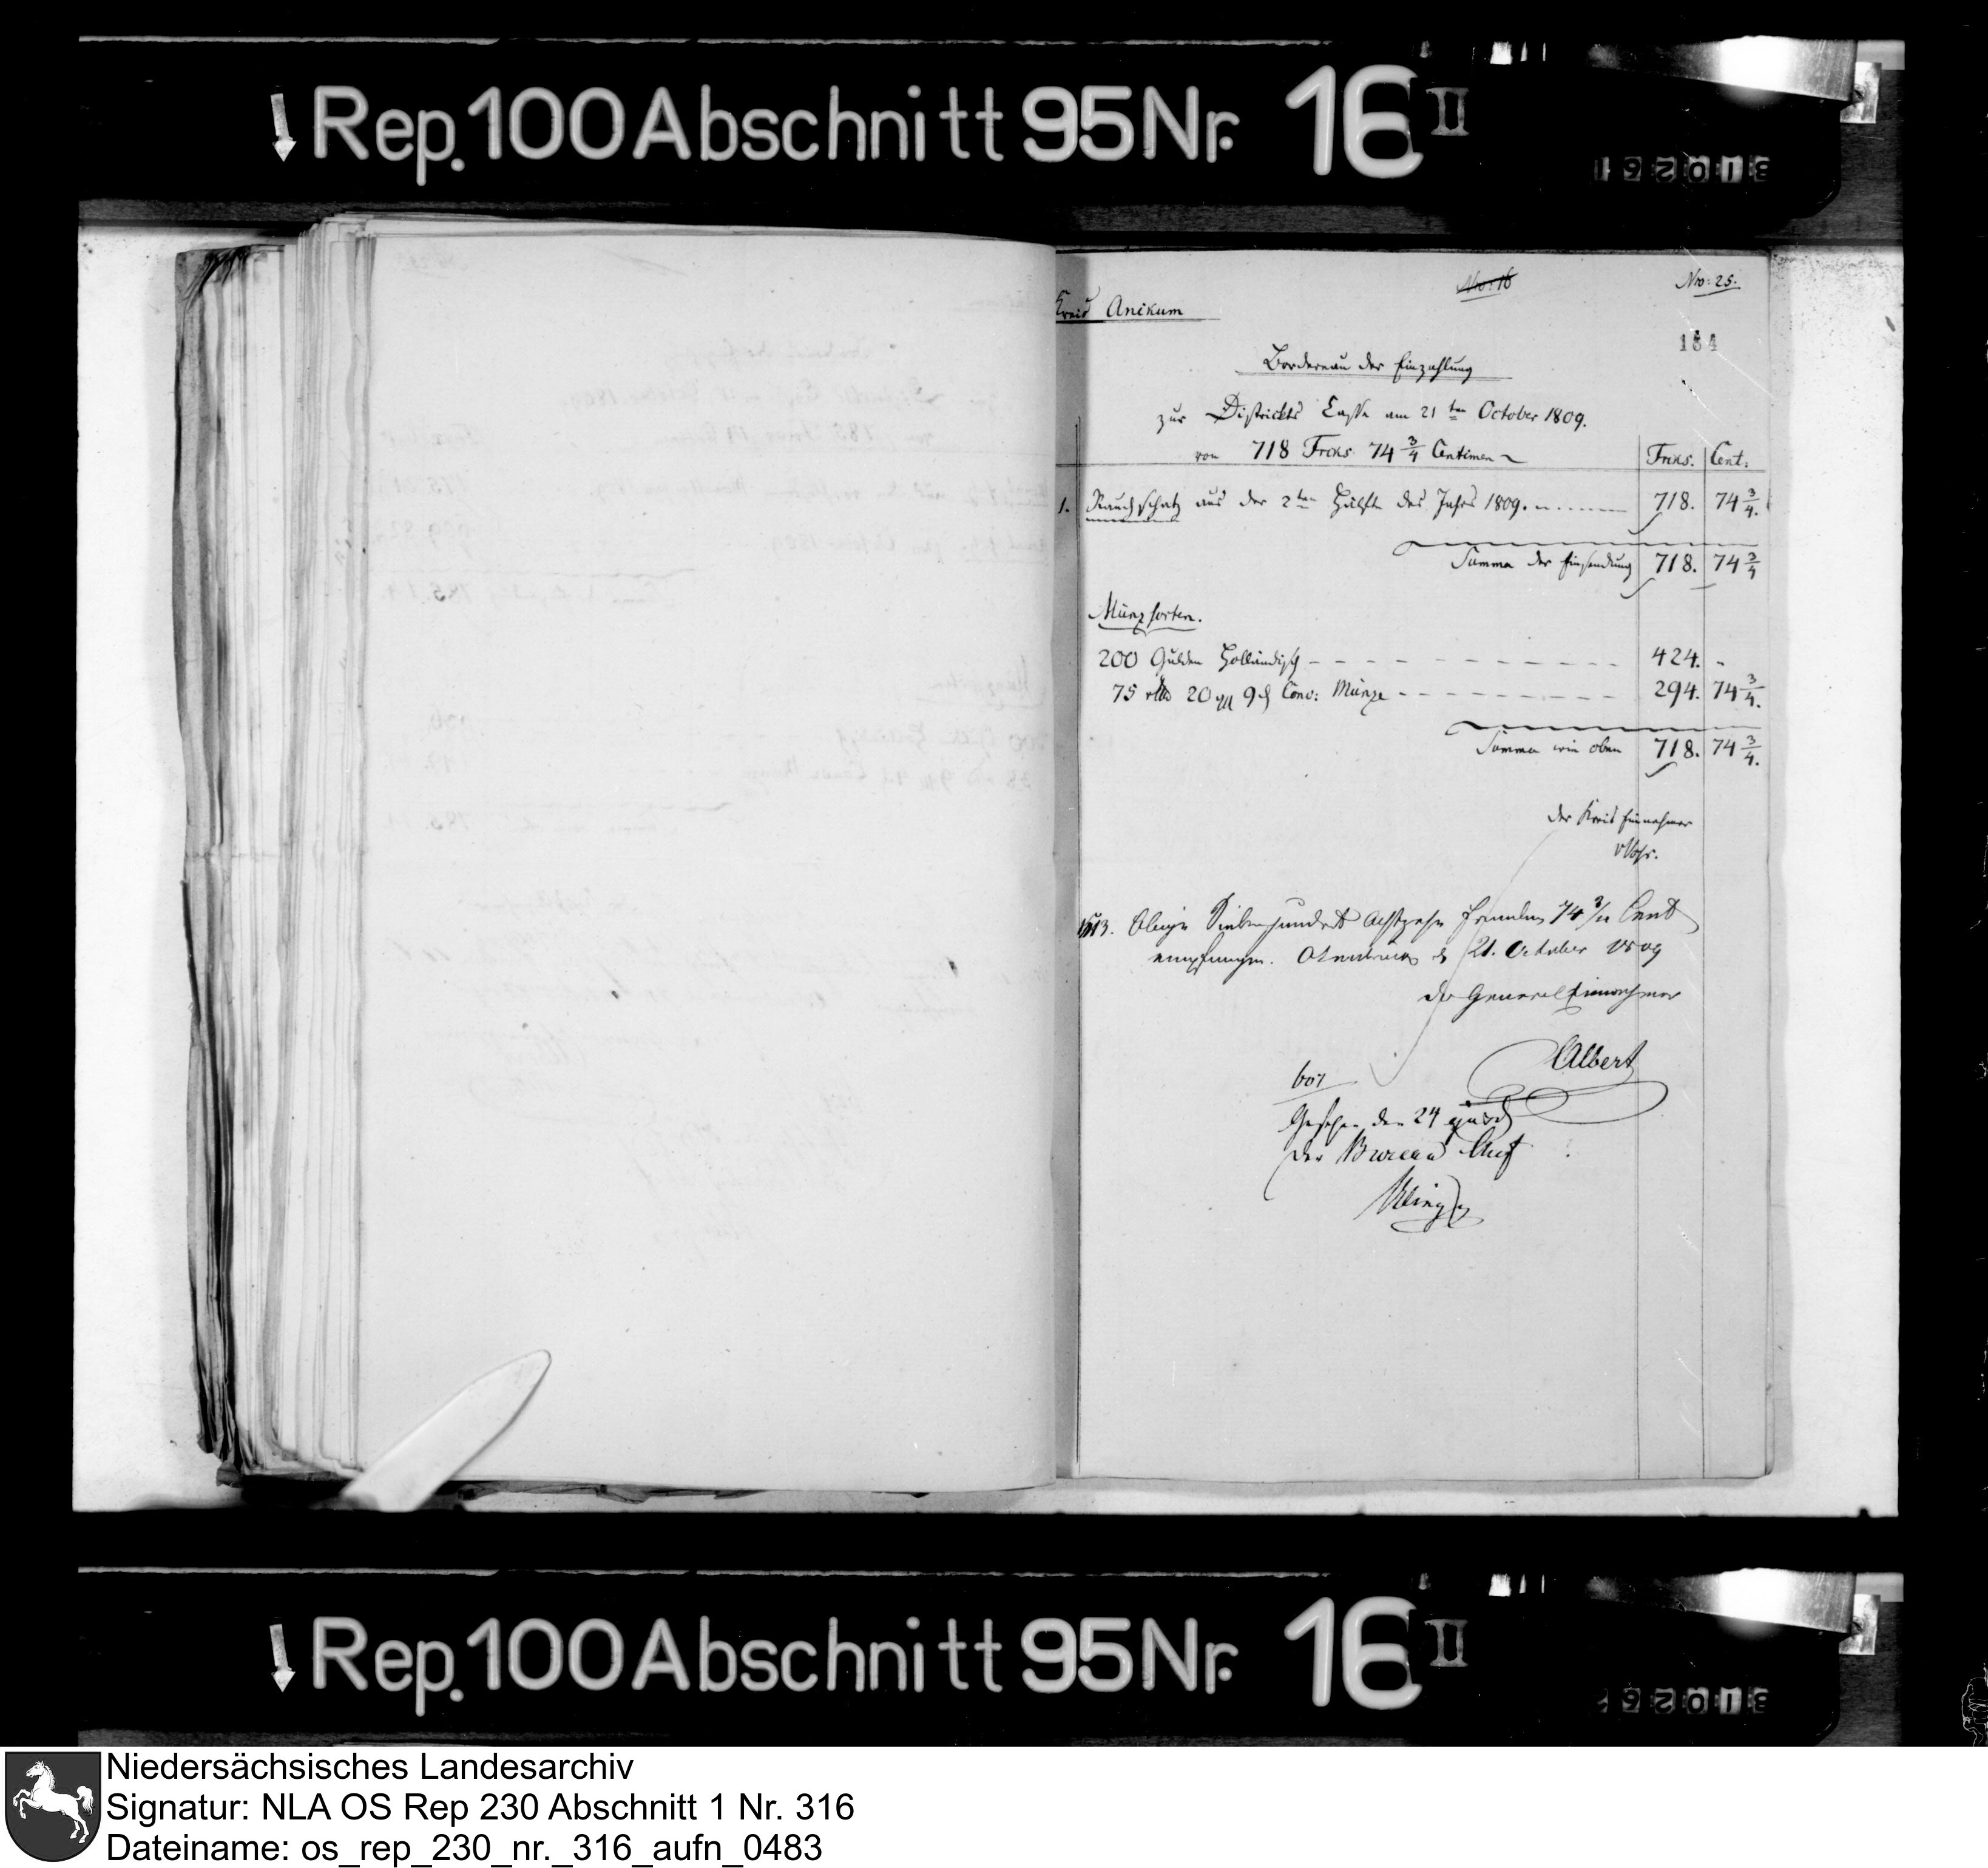 Rep. 100 Abschnitt 95 Nr. 16 II
310251
Nro: 16
Nro: 25.
Kreis Ankum
184
Bordereau der Einzahlung
zur Districkts Casse am 21ten October 1809.
von 718 Frcks. 74 3/4 Centimen
Frcks. Cent:
1. Rauchschatz aus der 2ten Hälfte des Jahrs 1809. 718. 74 3/4.
Summa der Einsendung 718. 74 3/4
Münzsorten.
200 Gulden Holländisch 424. -
75 rthlr 20 ggl 9 d Conv: Münze 294. 74 3/4.
Summa wie oben 718. 74 3/4.
der Kreis Einnehmer
Obige Siebenhundert Achtzehn Franken 74 3/4 Cent
empfangen. Osnabrück d 21. October 1809
der General Einnehmer
Albert
Gesehen den 24
Der Bureau Chef
Rep. 100 Abschnitt 95 Nr. 16 II
Niedersächsisches Landesarchiv
Signatur: NLA OS Rep 230 Abschnitt 1 Nr. 316
Dateiname: os_rep_230_nr._316_aufn_0483